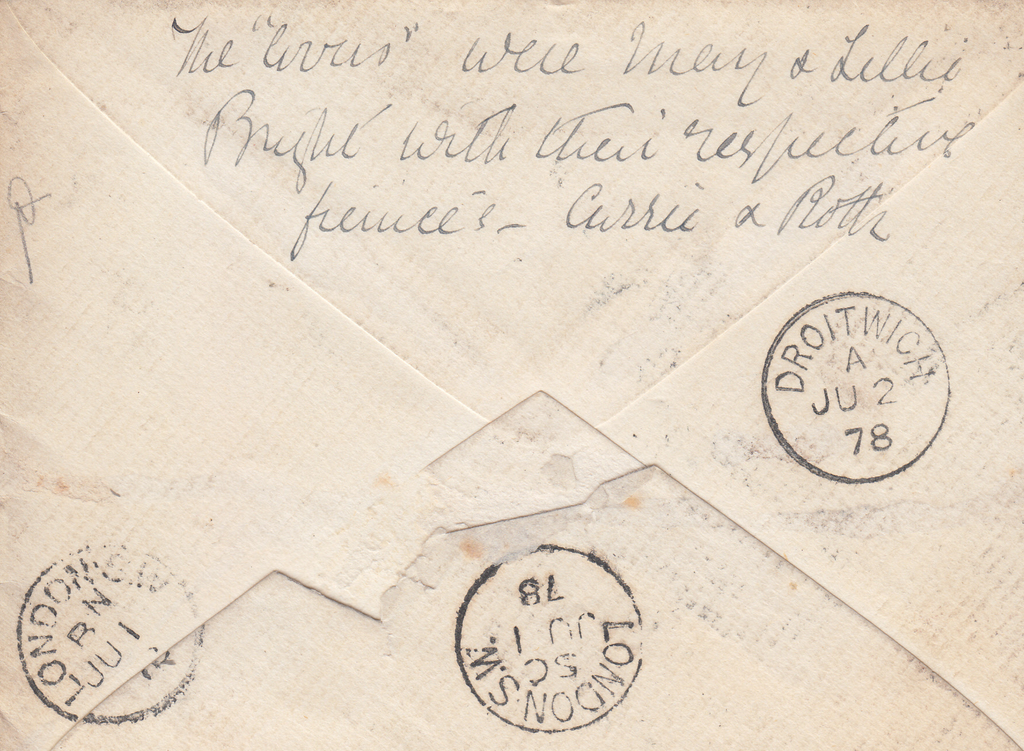 The "lovers" were May & Lillie
Bright with their respective
fiancée's - Currie & Roth
DROITWICH
A
JU 2
78
LONDON·S.W
BN
JU 1
LONDON·S.W.
SC
JU 1
78